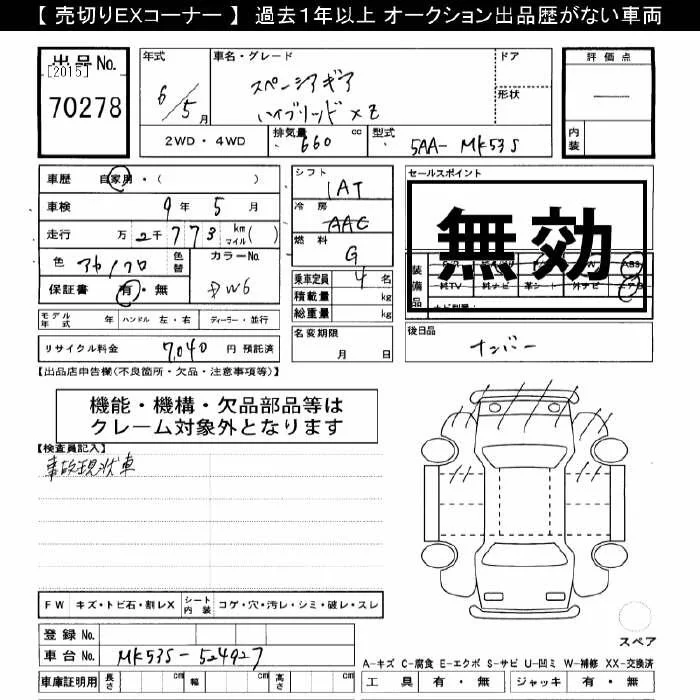 【 売切りEXコーナー 】 過去1年以上 オークション出品歴がない車両
出品No.
[2015]
70278
年式
6/5月
車名・グレード
スペーシアギア
ハイブリッドXZ
ドア
形状
評価点
内装
2WD・4WD
排気量 660 cc
型式 5AA-MK53S
車歴 自家用・( )
車検 9年 5月
走行 万 2千 773 km マイル( )
色 アカ/クロ
色替
カラーNo.
保証書 有・無
シフト IAT
冷房 AAC
燃料 G
乗車定員 4名
積載量 kg
総重量 kg
セールスポイント
無効
装備品
純TV 純ナビ 革シート
モデル年式 年 ハンドル 左・右 ディーラー・並行
リサイクル料金 7,040 円 預託済
名変期限
月 日
後日品
ナンバー
【出品店申告欄(不良箇所・欠品・注意事項等)】
機能・機構・欠品部品等は
クレーム対象外となります
【検査員記入】
事故現状車
FW キズ・トビ石・割レX シート内装 コゲ・穴・汚レ・シミ・破レ・スレ
登録No.
車台No. MK53S-524927
車庫証明用 長さ cm 幅 cm 高さ cm
スペア
A-キズ C-腐食 E-エクボ S-サビ U-凹ミ W-補修 XX-交換済
工具 有・無 ジャッキ 有・無